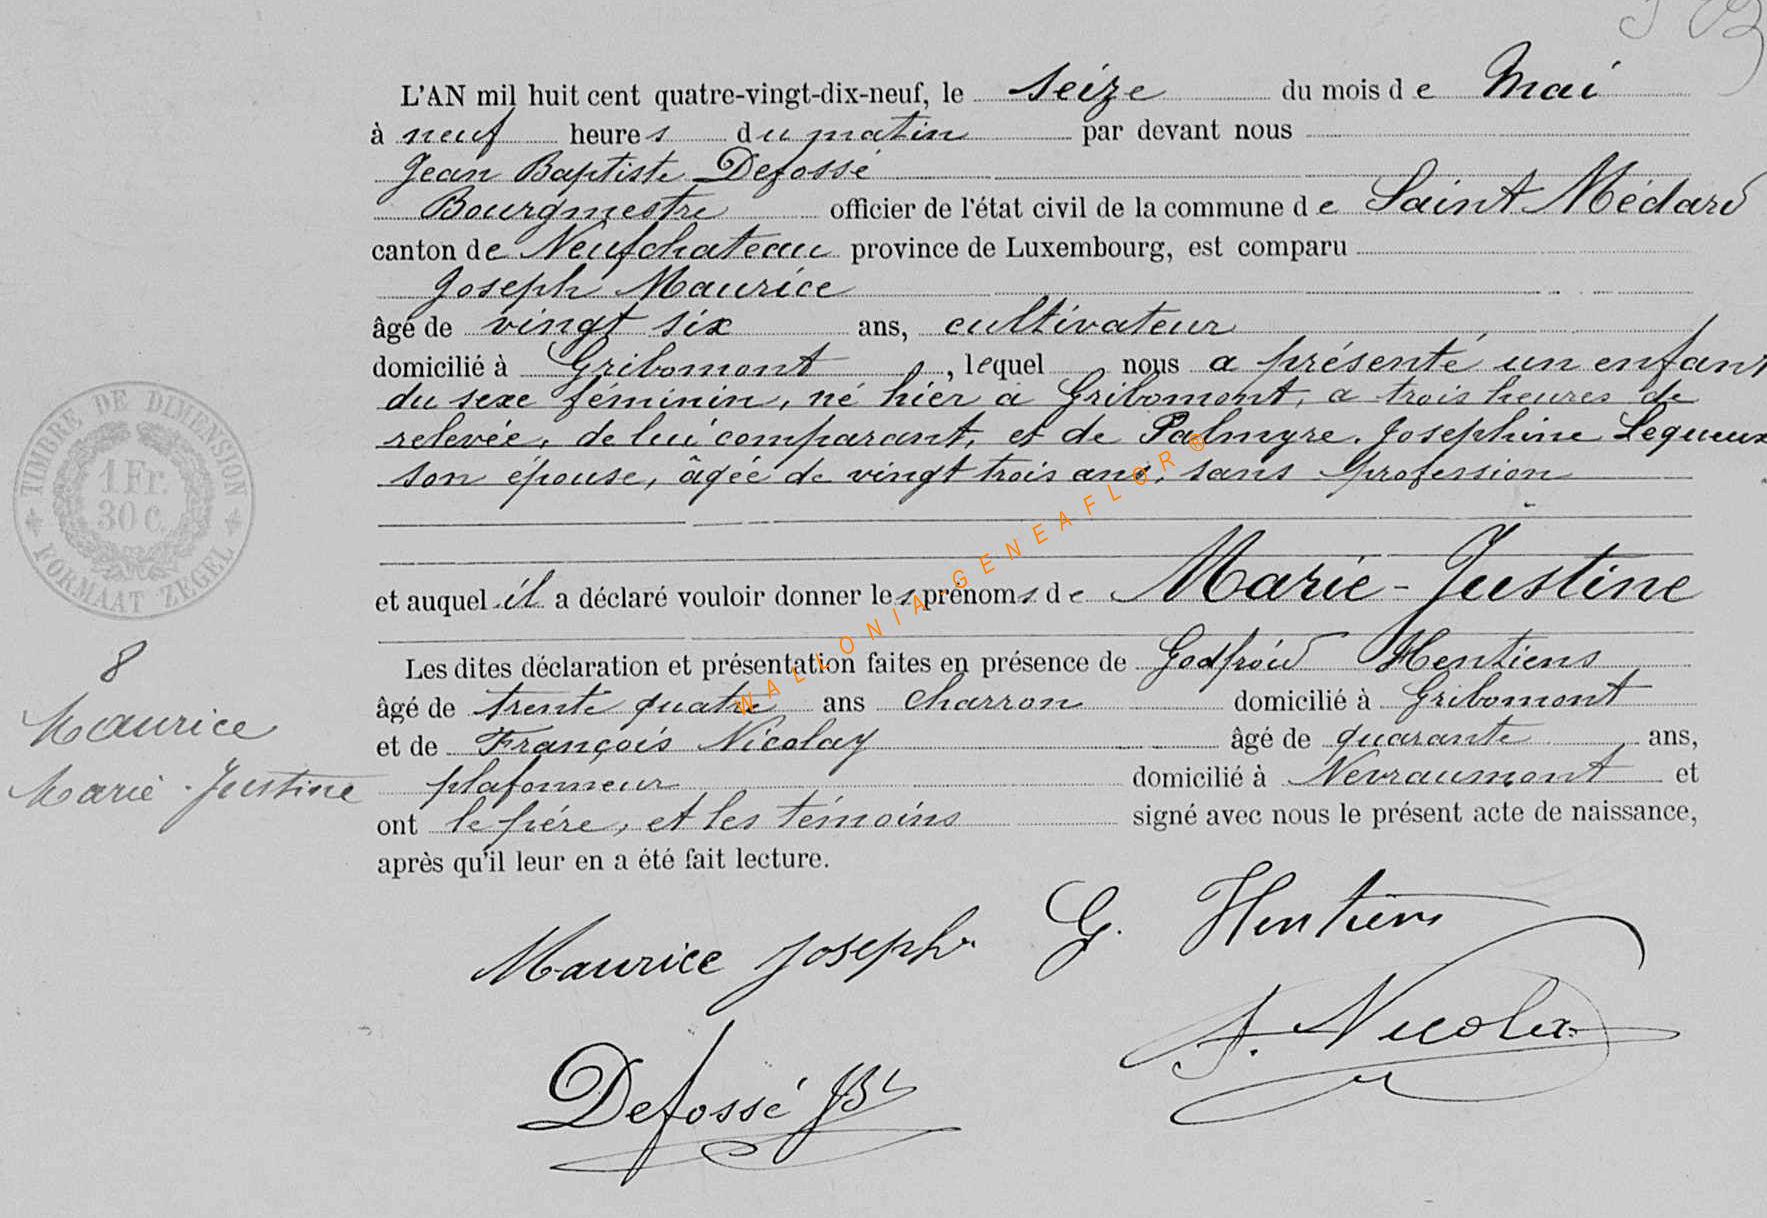 L'AN mil huit cent quatre-vingt-dix-neuf, le seize du mois de Mai
à neuf heures du matin par devant nous
Jean Baptiste Defossé
Bourgmestre officier de l'état civil de la commune de Saint Médard
canton de Neufchateau province de Luxembourg, est comparu
Joseph Maurice
âgé de vingt six ans, cultivateur
domicilié à Gribomont, lequel nous a présenté un enfant
du sexe féminin, né hier à Gribomont, a trois heures de
relevée, de lui comparant, et de Palmyre Josephine Lequeux
son épouse, âgée de vingt trois ans, sans profession
et auquel il a déclaré vouloir donner les prénoms de Marie-Justine
Les dites déclaration et présentation faites en présence de Godfroid Hentiens
âgé de trente quatre ans charron domicilié à Gribomont
et de François Nicolay âgé de quarante ans,
plafonneur domicilié à Nevraumont et
ont le père, et les témoins signé avec nous le présent acte de naissance,
après qu'il leur en a été fait lecture.
Maurice Joseph G. Hentiens
Defossé JBt F. Nicolay
TIMBRE DE DIMENSION
1 Fr.
30 c.
FORMAAT ZEGEL
8
Maurice
Marie-Justine
WALLONIA GENEAFLOR ®